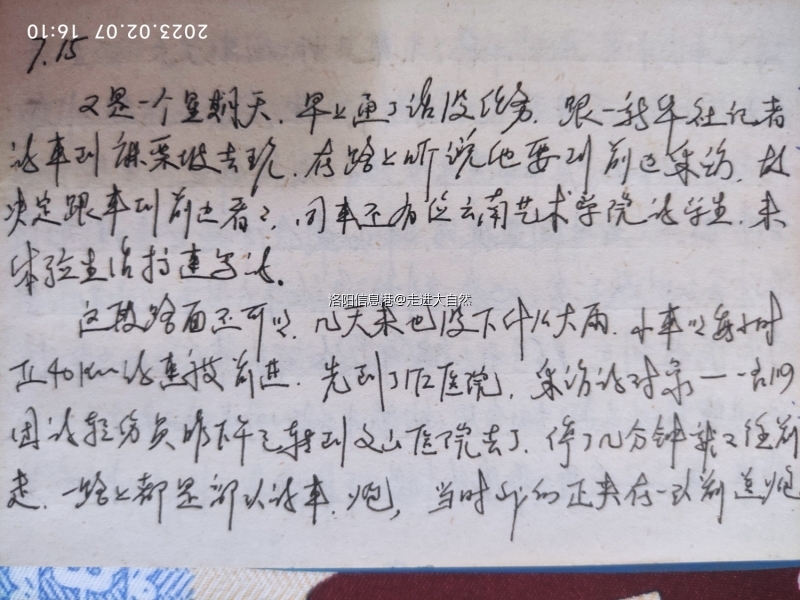 2023.02.07 16:10
7.15
又是一个星期天,早上通了话没任务,跟一新华社记者
的车到麻栗坡去玩,在路上听说他要到前边采访,故
决定跟车到前边看看,同车还有位云南艺术学院的学生,来
体验生活搞速写的。
洛阳信息港@走进大自然
这段路面还可以,几天来也没下什么大雨,小车以每小时
40km的速度前进,先到了医院,采访的对象一一名119
团的轻伤员昨下午已转到文山医院去了,停了几分钟就又往前
走,一路上都是部队的车、炮,当时我们正夹在一队前送炮